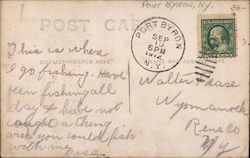 PORT BYRON, NY.
POST CARD
PORT BYRON
SEP
10
6PM
1912
N.Y.
CORRESPONDENCE HERE
This is where
I go fishing. Have
been fishing all
day & have not
caught a thing
wish you could fish
with me
Walter
Wynantsk
Rens Co
Ny